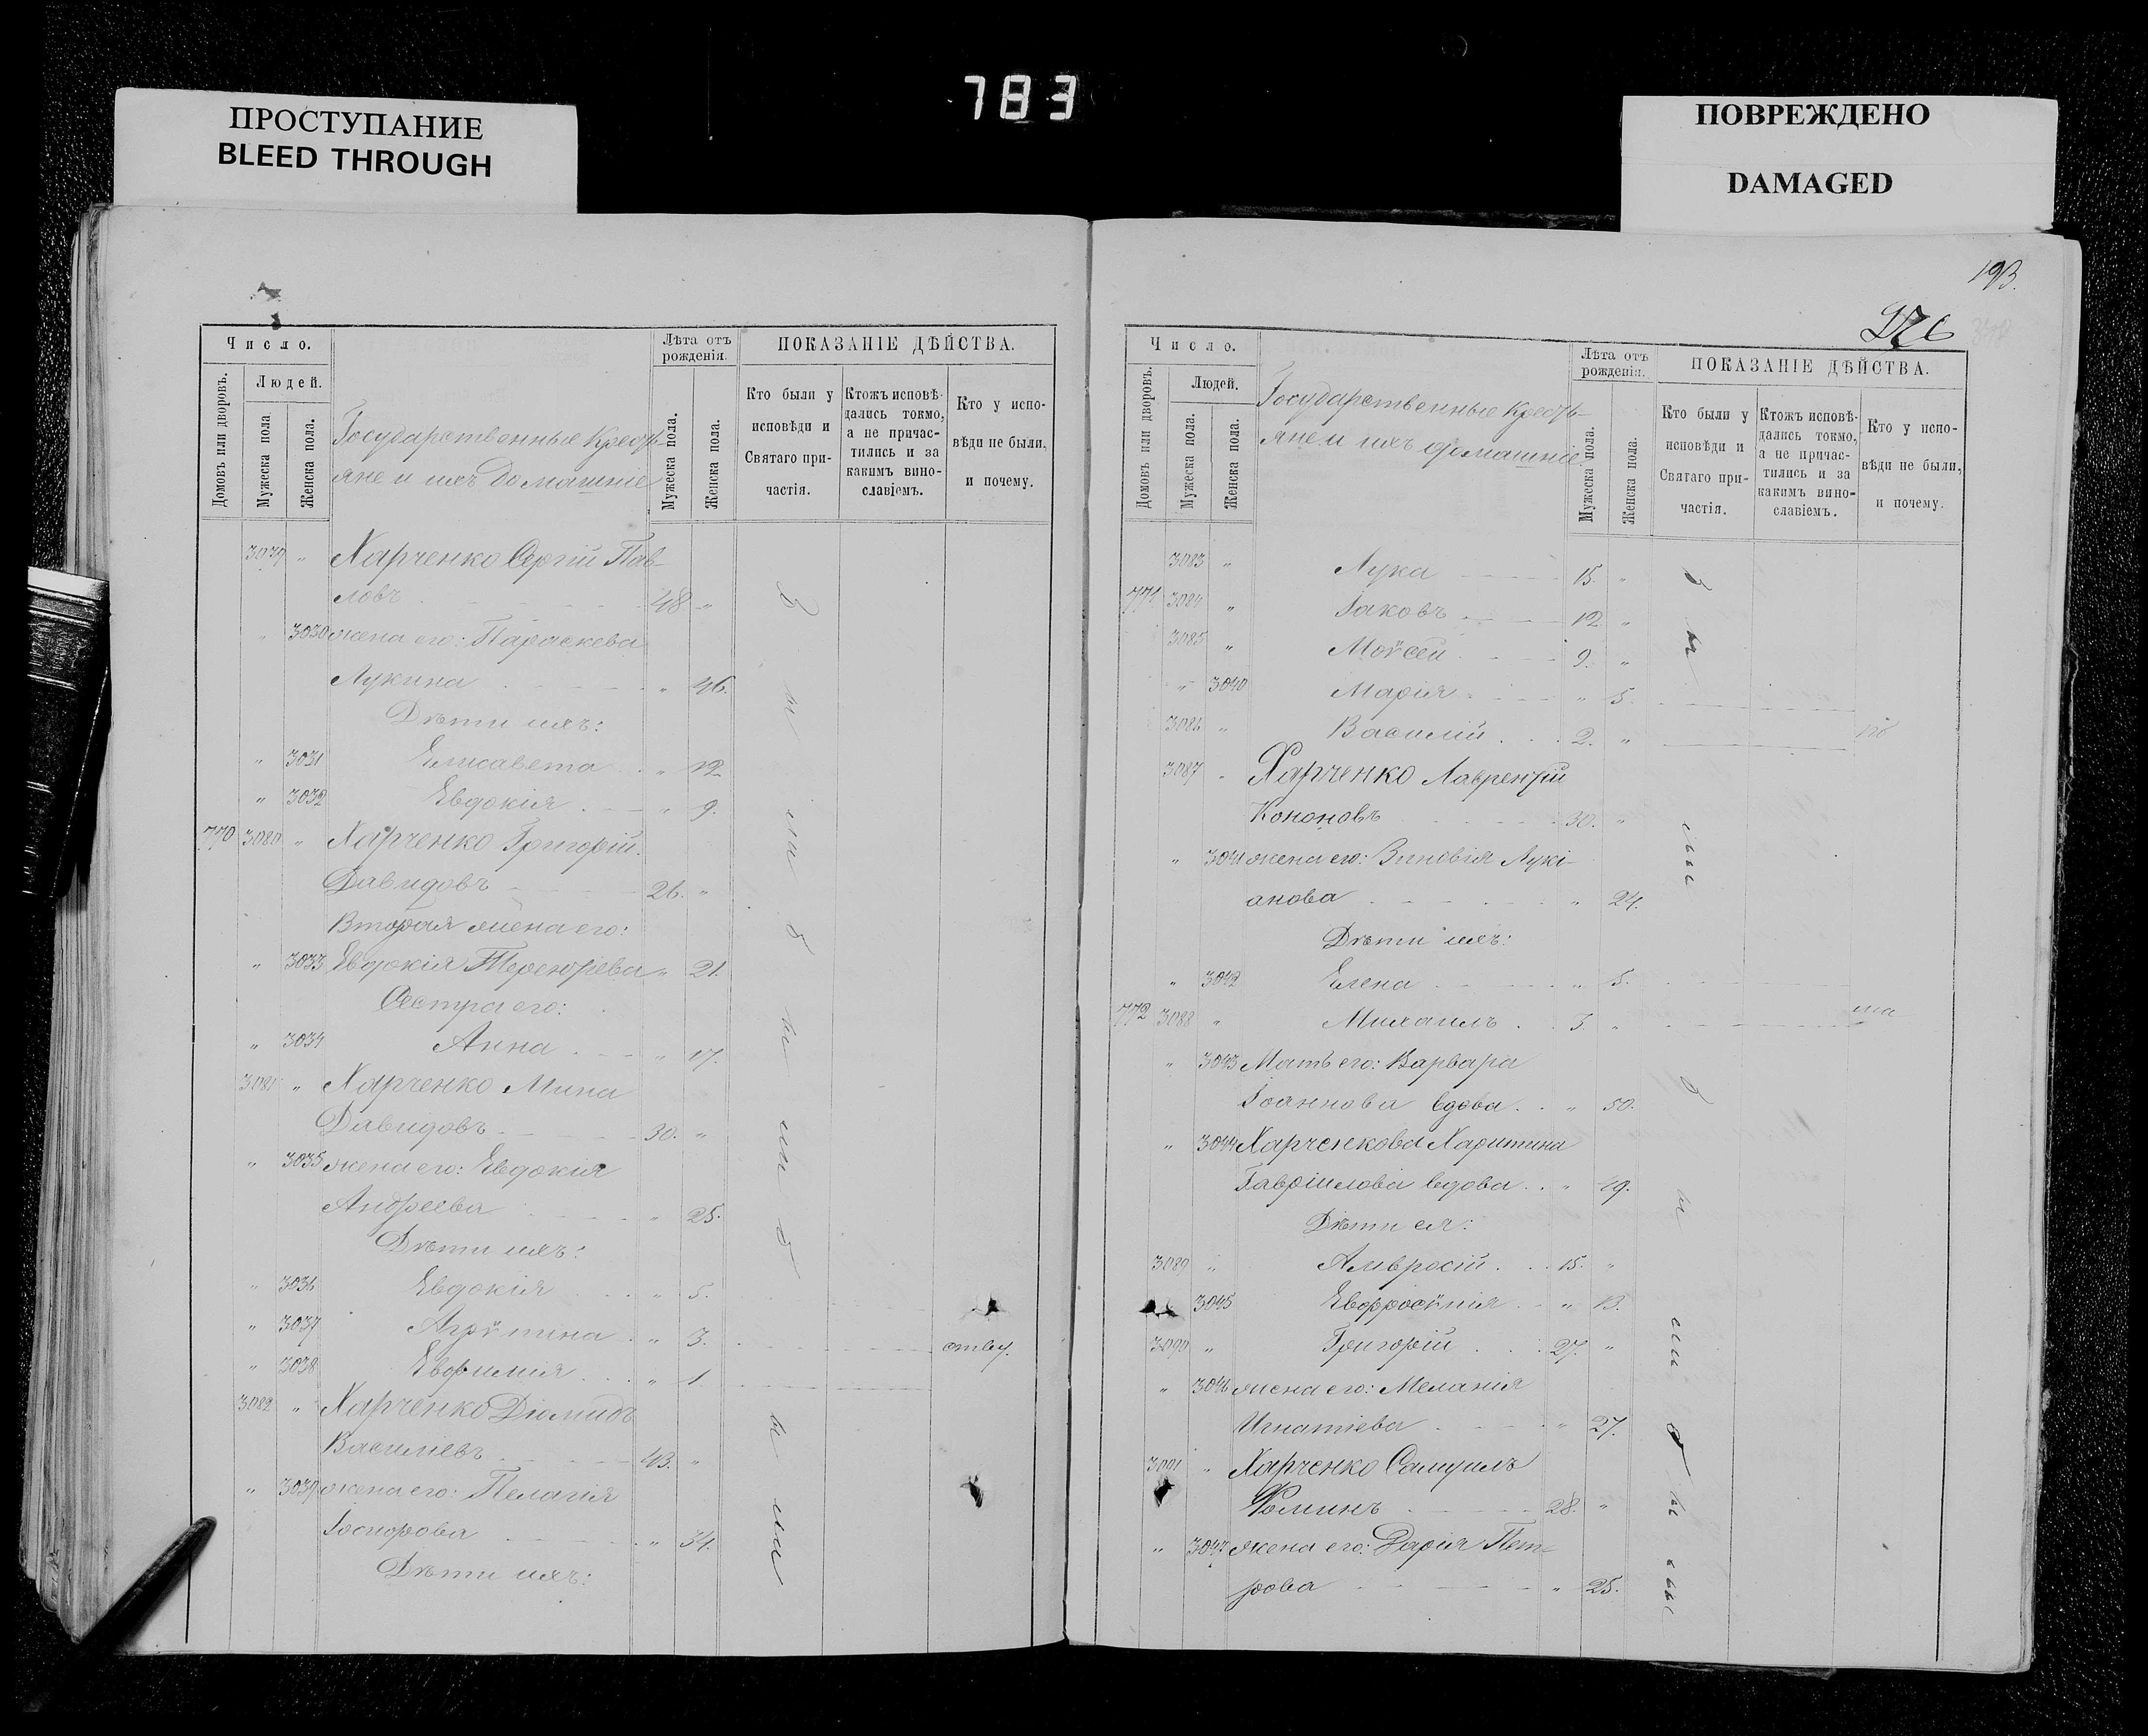 783
ПРОСТУПАНИЕ
BLEED THROUGH
ПОВРЕЖДЕНО
DAMAGED
Число.
Людей.
Домовъ или дворовъ.
Мужеска пола
Женска пола.
Государственные Кресть-
яне и ихъ Домашніе
Лѣта отъ рожденія.
Мужеска пола.
Женска пола.
ПОКАЗАНІЕ ДѢЙСТВА.
Кто были у исповѣди и Святаго причастія.
Ктожъ исповѣ-
дались токмо,
а не причас-
тились и за
какимъ вино-
славіемъ.
Кто у испо-
вѣди не были,
и почему.
" Харченко Сергій Пав-
ловъ 48 "
" 3030 жена его: Параскева
Лукина " 46.
Дѣти ихъ:
" 3031 Елисавета " 12
" 3032 Евдокія " 9.
770 3080 " Харченко Григорій
Давидовъ 26. "
Вторая жена его:
" 3033 Евдокія Терентьева " 21.
Сестра его:
" 3034 Анна " 17.
3081 " Харченко Мина
Давидовъ 30. "
" 3035 жена его: Евдокія
Андреева " 25.
Дѣти ихъ:
" 3036 Евдокія " 5.
" 3037 Агрѵпина " 3.
" 3038 Евфимія " 1.
3082 " Харченко Діомидъ
Василіевъ 43. "
" 3039 жена его: Пелагія
" 34.
Дѣти ихъ:
193.
Число.
Людей.
Домовъ или дворовъ.
Мужеска пола.
Женска пола.
Государственные Кресть-
яне и ихъ домашніе
Лѣта отъ
рожденія.
Мужеска пола.
Женска пола.
ПОКАЗАНІЕ ДѢЙСТВА.
Кто были у
исповѣди и
Святаго при-
частія.
Ктожъ исповѣ-
дались токмо,
а не причас-
тились и за
какимъ вино-
славіемъ.
Кто у испо-
вѣди не были,
и почему.
3083 " Лука 15. "
771 3084 " Іаковъ 12 "
3085 " Моѵсей 9. "
" 3040 Марія " 5.
3086 " Василій 2. "
3087 " Харченко Лаврентій
Кононовъ 30. "
" 3041 жена его: Зиновія Лукі-
анова " 24.
Дѣти ихъ:
" 3042 Елена " 5.
772 3088 " Михаилъ 3 "
" 3043 Мать его: Варвара
Іоаннова вдова " 50.
" 3044 Харченкова Харитина
Гавріилова вдова " 49.
Дѣти ея:
3089 " Амвросій 15. "
3045 Евфросѵнія " 13.
3090 " Григорій 27. "
" 3046 жена его: Меланія
Игнатіева " 27.
3091 " Харченко Самуилъ
Ѳоминъ 28. "
" 3047 жена его: Дарія Пет-
рова " 25.